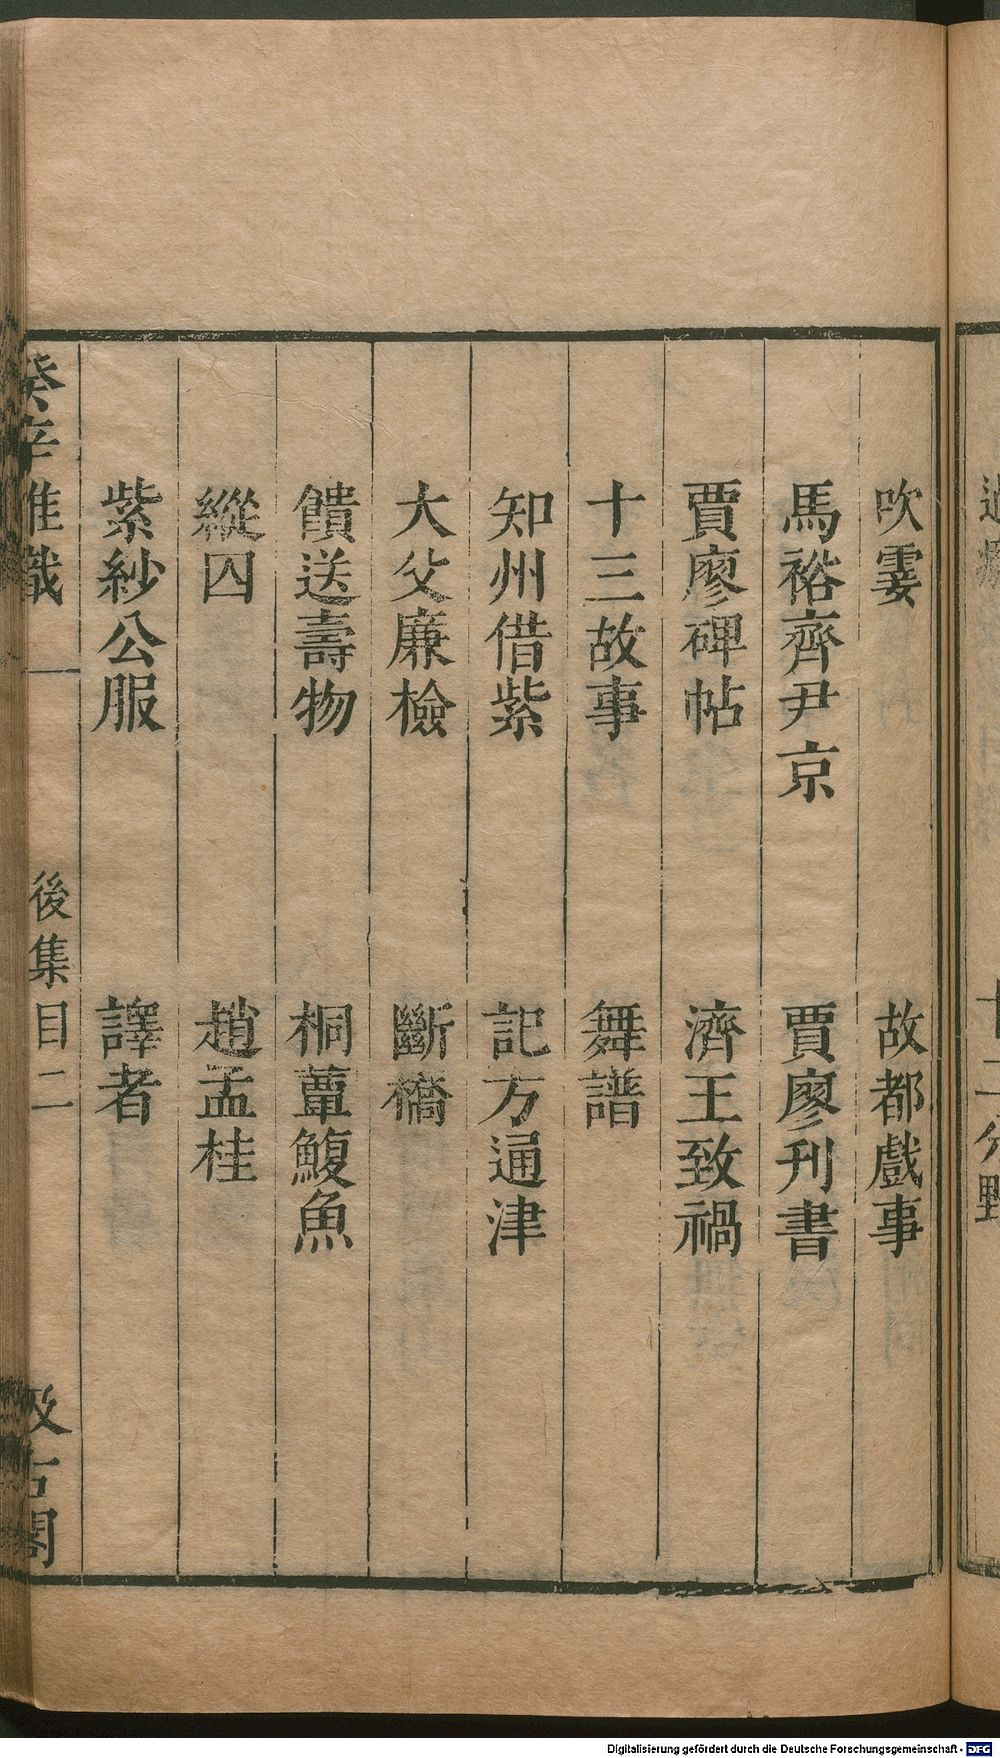 吹霎　故都戲事
馬裕齊尹京　賈廖刊書
賈廖碑帖　濟王致禍
十三故事　舞譜
知州借紫　記方通津
大父廉檢　斷橋
饋送壽物　桐蕈鰒魚
縱囚　趙孟桂
紫紗公服　譯者
癸辛雜識　後集目二　汲古閣
十二分野
Digitalisierung gefördert durch die Deutsche Forschungsgemeinschaft - DFG